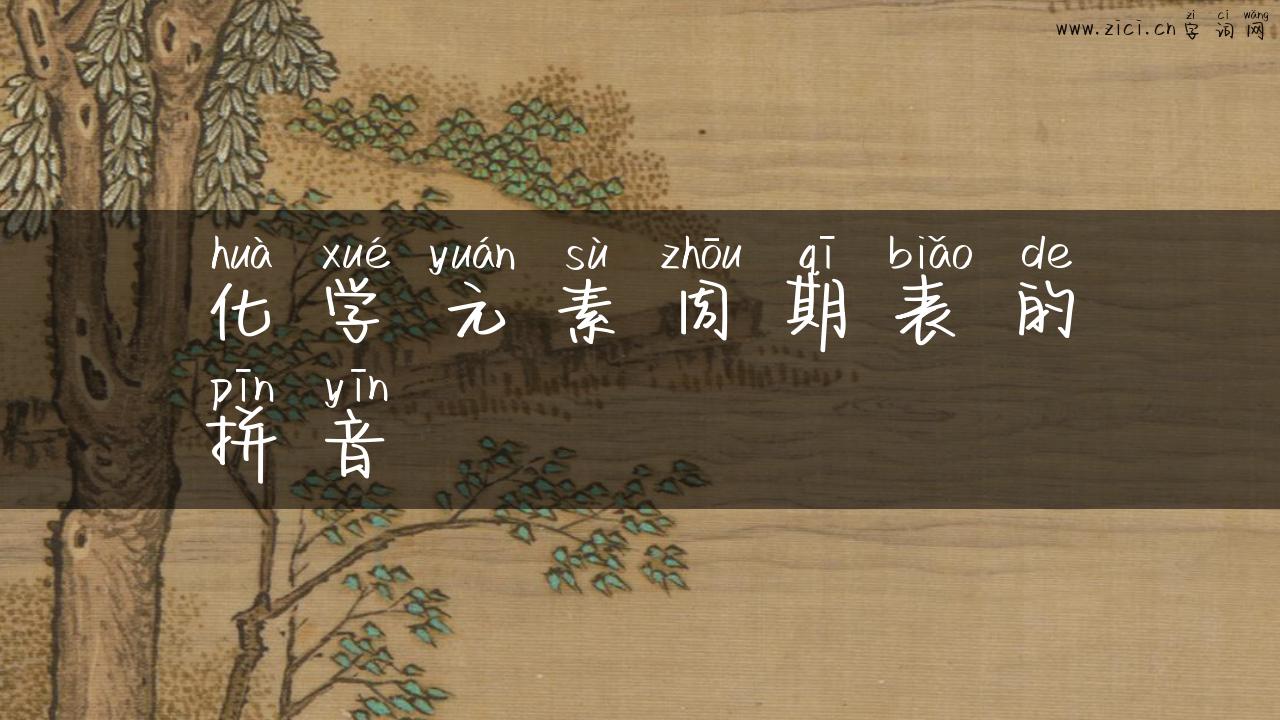 zì cí wǎng
www.zici.cn 字词网
huà xué yuán sù zhōu qī biǎo de
化学元素周期表的
pīn yīn
拼音